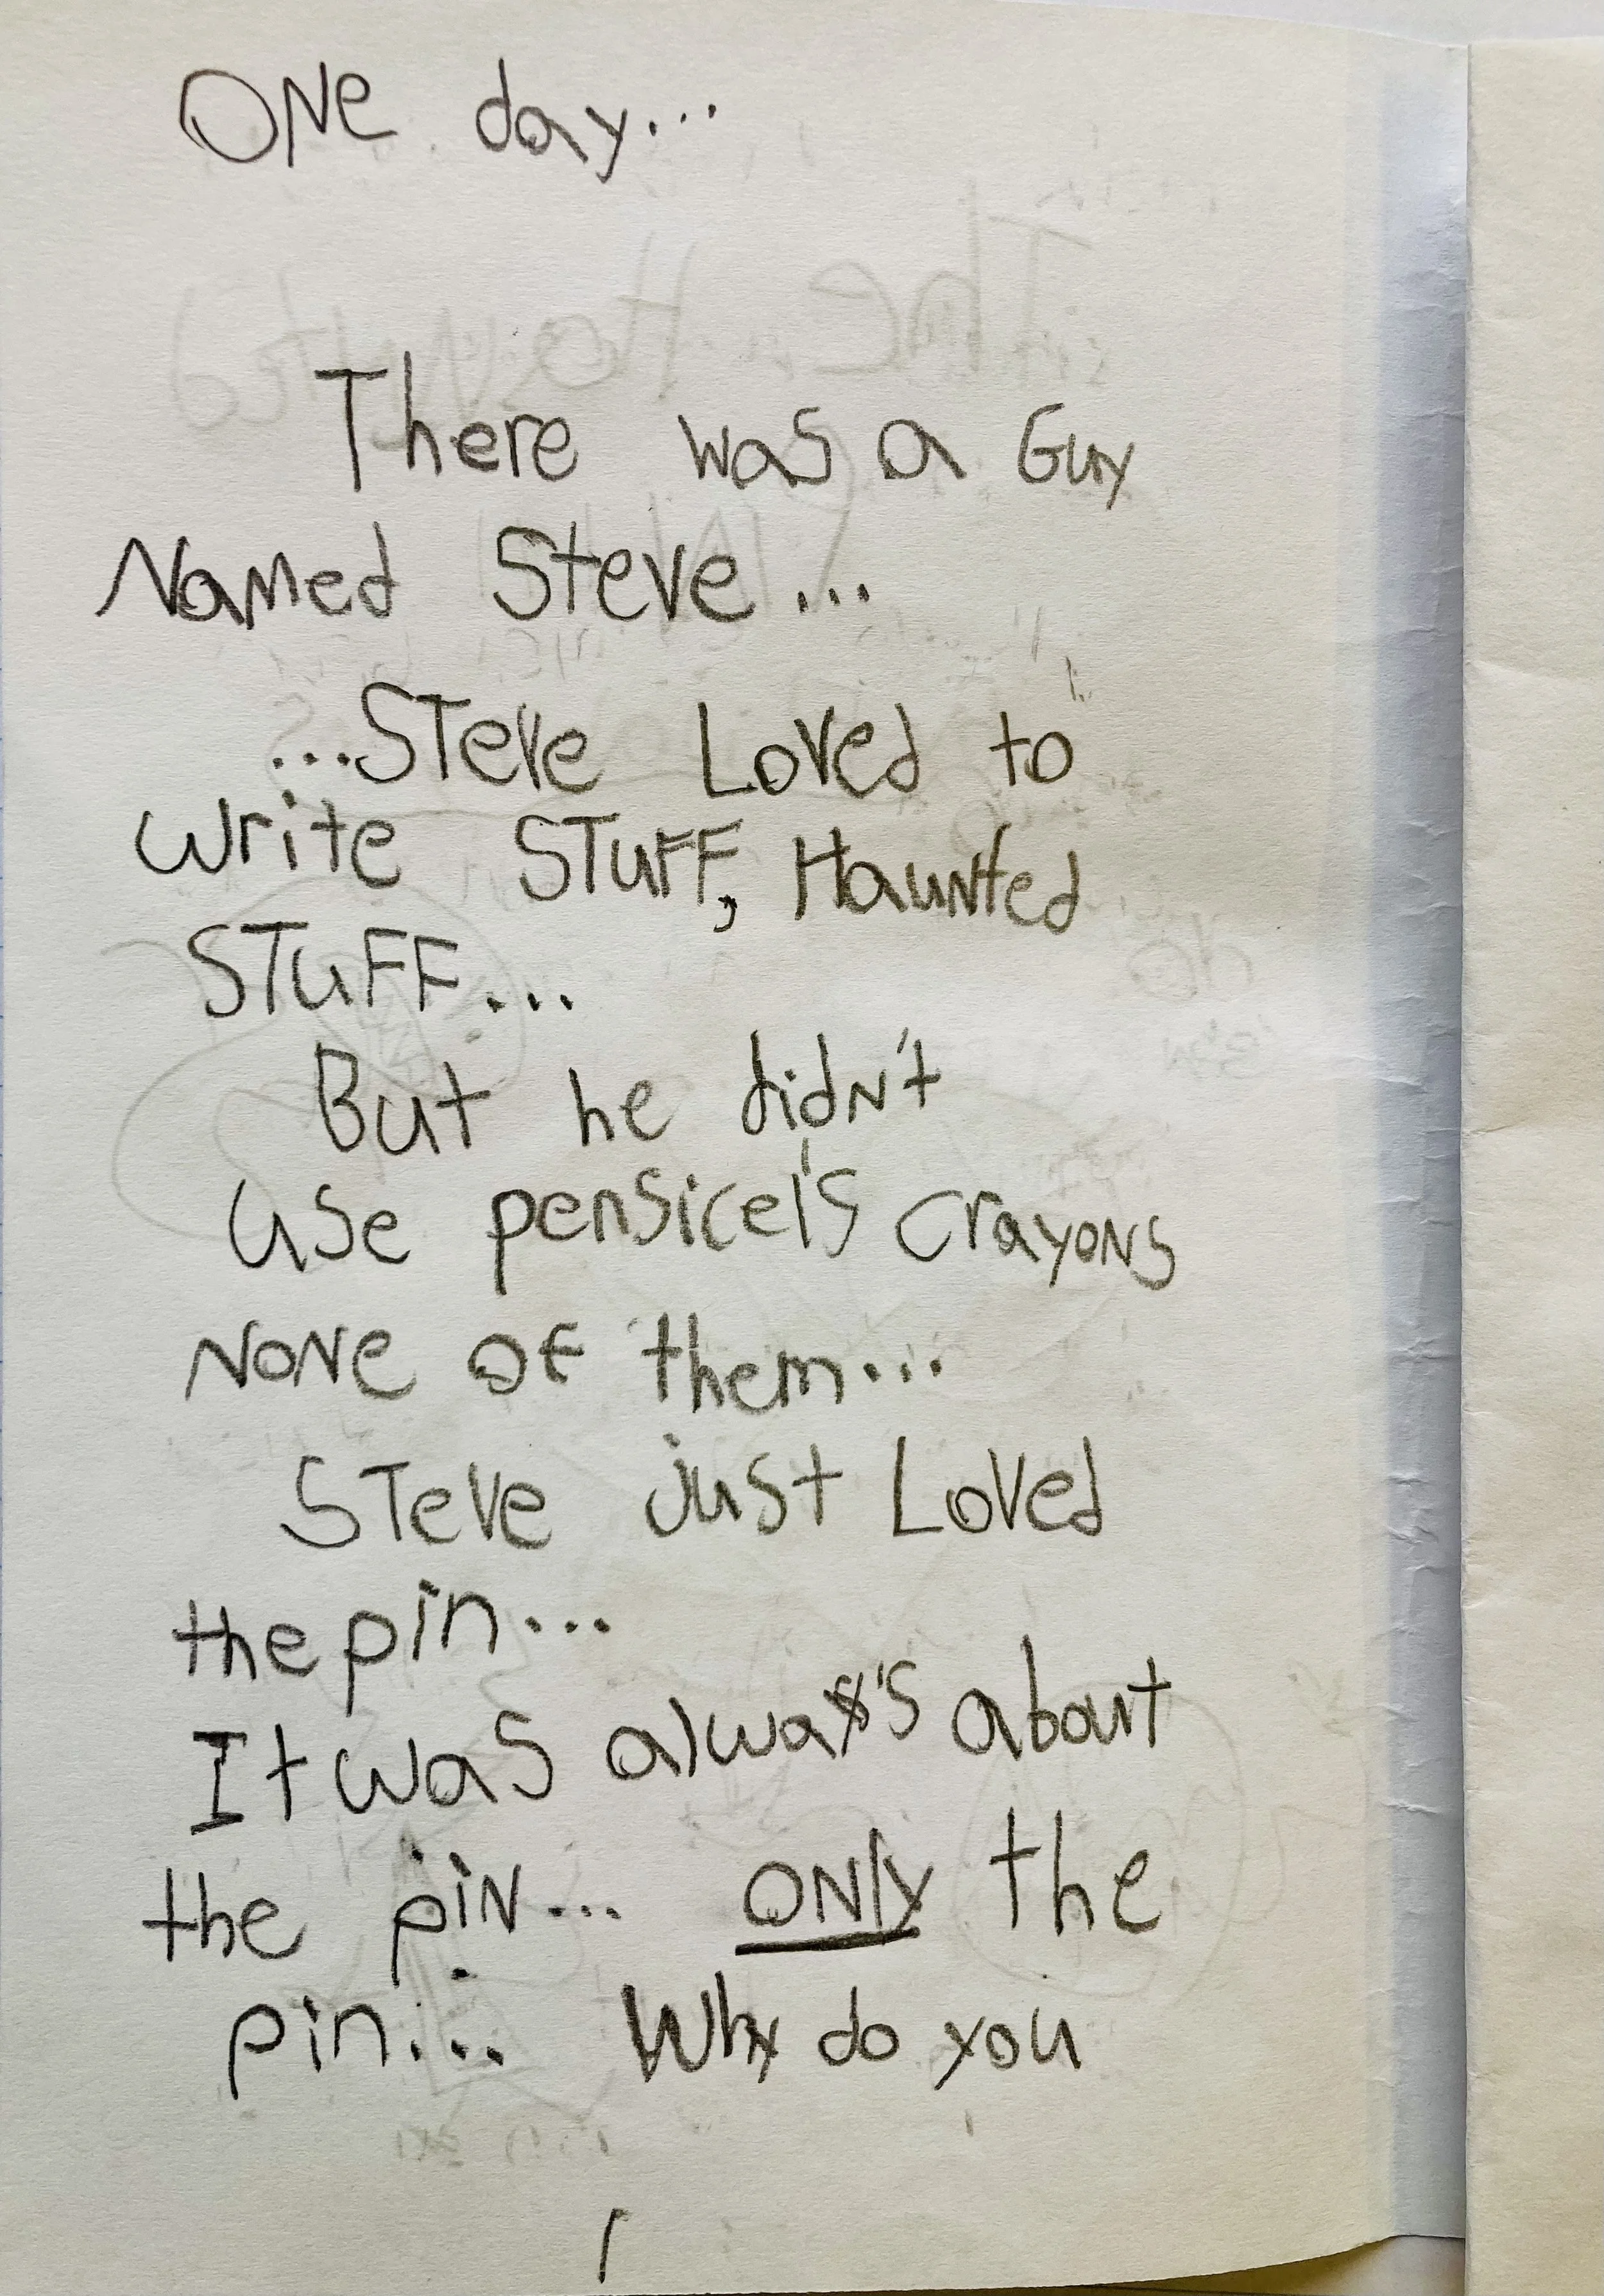 ONe day...
There was a Guy
Named Steve...
...STeve Loved to
write STuFF, Haunted
STuFF...
But he didn't
use pensicel's crayons
NoNe of them...
STeve just Loved
the pin...
It was always's about
the piN... ONly the
pin... Why do you
1
The Haunted